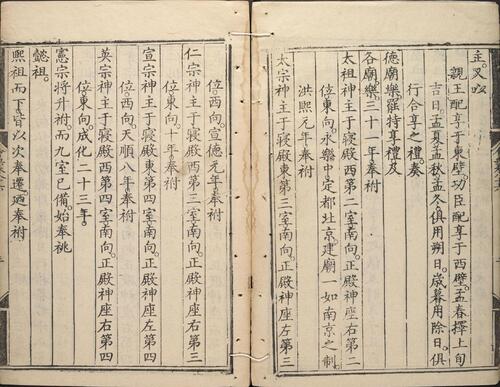 主。又以
親王配享于東壁。功臣配享于西壁。孟春擇上旬
吉日。孟夏孟秋孟冬俱用朔日。歲暮用除日。俱
行合享之禮。奏
德廟樂。罷特享禮及
各廟樂。三十一年奉祔
太祖神主于寢殿西第二室南向。正殿神座右第二
位東向。永樂中定都北京。建廟一如南京之制。
洪熙元年奉祔
太宗神主于寢殿東第三室南向。正殿神座左第三
位西向。宣德元年奉祔
仁宗神主于寢殿西第三室南向。正殿神座右第三
位東向。十年奉祔
宣宗神主于寢殿東第四室南向。正殿神座左第四
位西向。天順八年奉祔
英宗神主于寢殿西第四室南向。正殿神座右第四
位東向。成化二十三年。
憲宗將升祔而九室已備。始奉祧
懿祖。
熙祖而下皆以次奉遷。迺奉祔